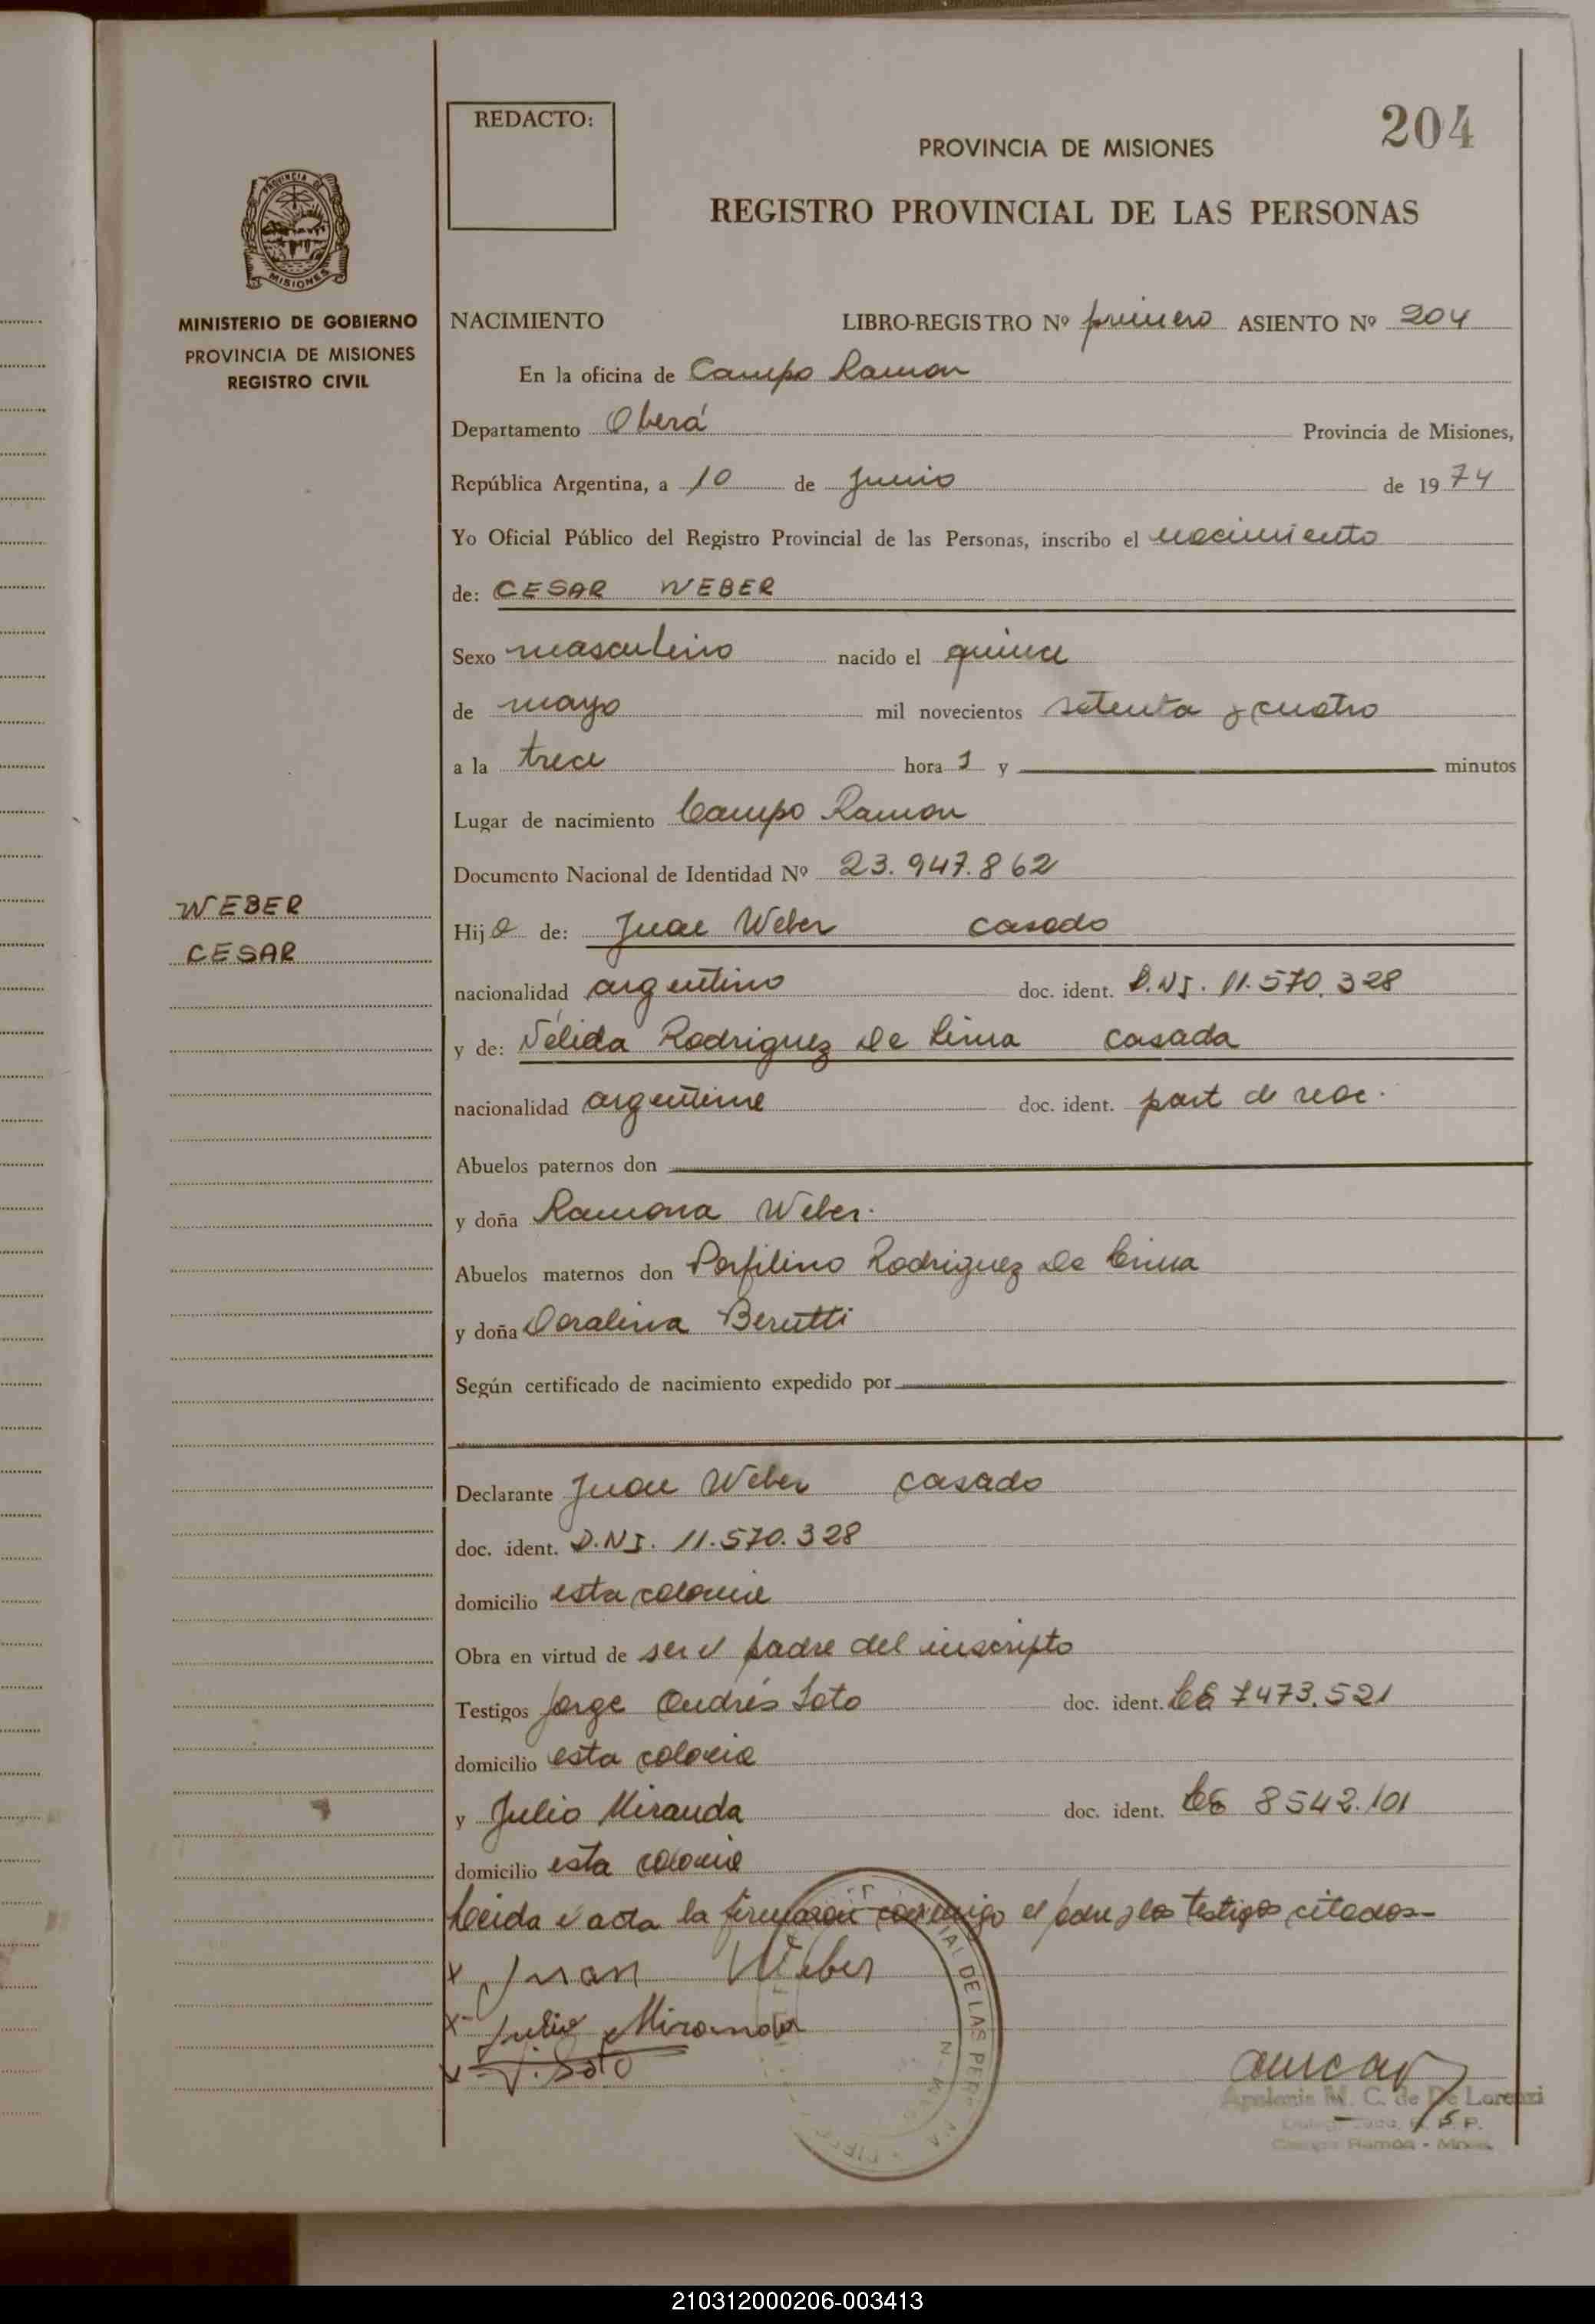 204
REDACTO:
PROVINCIA DE MISIONES
REGISTRO PROVINCIAL DE LAS PERSONAS
PROVINCIA DE
MISIONES
MINISTERIO DE GOBIERNO
PROVINCIA DE MISIONES
REGISTRO CIVIL
WEBER
CESAR
NACIMIENTO LIBRO-REGISTRO Nº primero ASIENTO Nº 204
En la oficina de Campo Ramon
Departamento Oberá Provincia de Misiones,
República Argentina, a 10 de Junio de 1974
Yo Oficial Público del Registro Provincial de las Personas, inscribo el nacimiento
de: CESAR WEBER
Sexo masculino nacido el quince
de mayo mil novecientos setenta y cuatro
a la trece hora s y minutos
Lugar de nacimiento Campo Ramon
Documento Nacional de Identidad Nº 23.947.862
Hijo de: Juan Weber casado
nacionalidad argentino doc. ident. D.NI. 11.570.328
y de: Nélida Rodriguez De Lima casada
nacionalidad argentina doc. ident. part de nac.
Abuelos paternos don
y doña Ramona Weber.
Abuelos maternos don Porfilino Rodriguez De Lima
y doña Doralina Berutti
Según certificado de nacimiento expedido por
Declarante Juan Weber casado
doc. ident. D.NI. 11.570.328
domicilio esta colonia
Obra en virtud de ser el padre del inscripto
Testigos Jorge Andrés Soto doc. ident. 7473.521
domicilio esta colonia
y Julio Miranda doc. ident. 8542.101
domicilio esta colonia
Leida el acta la firmaron conmigo el padre y los testigos citados-
x Juan Weber
x Julio Miranda
x J. Soto
IAL DE LAS PER
Apolonia M. C. de De Lorenzi
R. P. P.
Campo Ramón - Mnes.
210312000206-003413